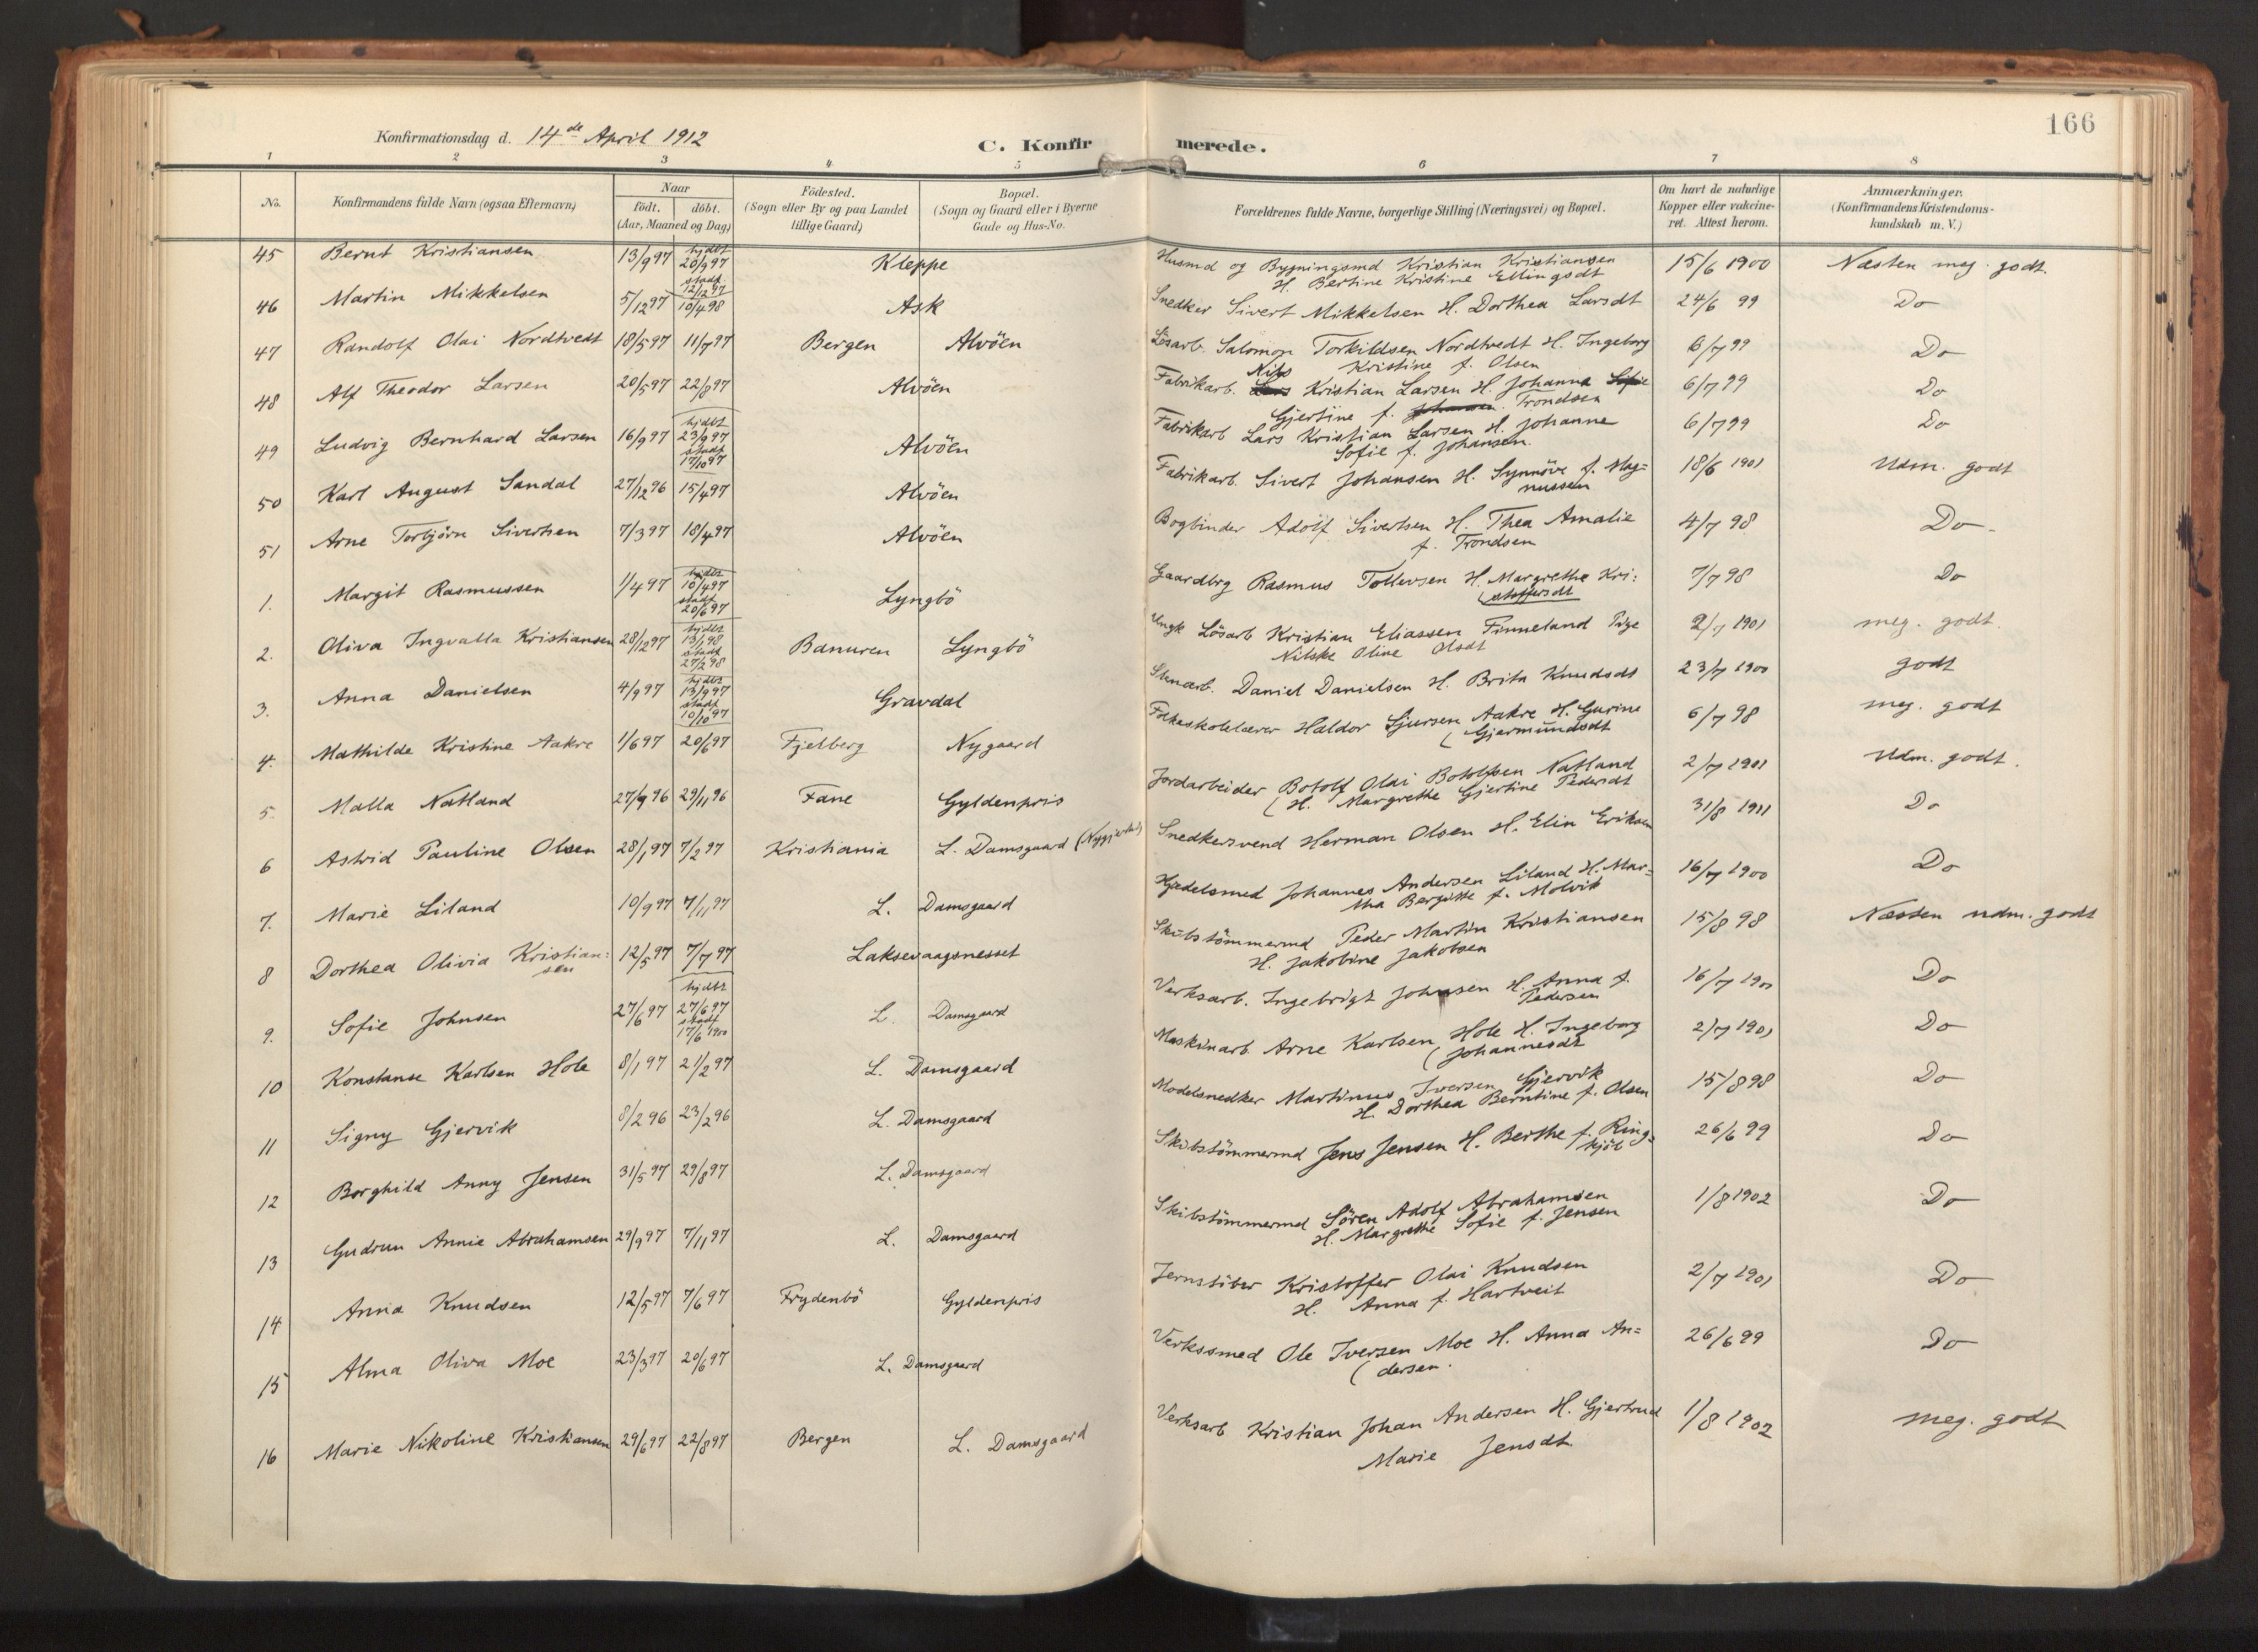 166
Konfirmationsdag d. 14de April 1912
C. Konfirmerede.
1 2 3 4 5 6 7 8
No. Konfirmandens fulde Navn (ogsaa Efternavn) Naar födt. döbt. (Aar, Maaned og Dag) Födested. (Sogn eller By og paa Landet tillige Gaard) Bopæl. (Sogn og Gaard eller i Byerne Gade og Hus-No. Forældrenes fulde Navne, borgerlige Stilling (Næringsvei) og Bopæl. Om havt de naturlige Kopper eller vaccineret. Attest herom. Anmærkninger. (Konfirmandens Kristendomskundskab m. V.)
45 Bernt Kristiansen 13/9 97 hjdbt 20/9 97 stadf 12/12 97 Kleppe Husmd og Bygningsmd Kristian Kristiansen
H. Bertine Kristine Ellingsdt 15/6 1900 Næsten meg. godt.
46 Martin Mikkelsen 5/12 97 10/4 98 Ask Snedker Sivert Mikkelsen H. Dorthea Larsdt 24/6 99 Do
47 Randolf Olai Nordtvedt 18/5 97 11/7 97 Bergen Alvöen Lösarb. Salomon Torkildsen Nordtvedt H. Ingeborg
Kristine f. Olsen 6/7 99 Do
48 Alf Theodor Larsen 20/5 97 22/8 97 Alvöen Fabrikarb. Nils Kristian Larsen H. Johanna Sofie
Gjertine f. Johansen. Trondsen 6/7 99 Do
49 Ludvig Bernhard Larsen 16/9 97 hjdbt 23/9 97 stadf 17/10 97 Alvöen Fabrikarb Lars Kristian Larsen H. Johanne
Sofie f. Johansen. 6/7 99 Do
50 Karl August Sandal 27/12 96 15/4 97 Alvöen Fabrikarb. Sivert Johansen H. Synnöve f. Mag=
nussen 18/6 1901 Udm. godt
51 Arne Torbjörn Sivertsen 7/3 97 18/4 97 Alvöen Bogbinder Adolf Sivertsen H. Thea Amalie
f. Trondsen 4/7 98 Do
1. Margit Rasmussen 1/4 97 hjdbt 10/4 97 stadf 20/6 97 Lyngbö Gaardbrg Rasmus Tollevsen H. Margrethe Kri=
stoffersdt 7/7 98 Do
2. Oliva Ingvalla Kristiansen 28/12 97 hjdbt 13/1 98 stadf 27/2 98 Banuren Lyngbö Ungk Lösarb Kristian Eliassen Finneland Pige
Nilske Oline Olsdt 2/7 1901 meg. godt.
3. Anna Danielsen 4/9 97 hjdbt 13/9 97 stadf 10/10 97 Gravdal Stenarb. Daniel Danielsen H. Brita Knudsdt 23/7 1900 godt
4. Mathilde Kristine Aakre 1/6 97 20/6 97 Fjelberg Nygaard Folkeskolelærer Haldor Sjursen Aakre H. Gurine
(Gjermundsdt 6/7 98 meg. godt
5. Malla Natland 27/9 96 29/11 96 Fane Gyldenpris Jordarbeider Botolf Olai Botolfsen Natland
(H. Margrethe Gjertine Pedersdt 2/7 1901 Udm. godt.
6 Astrid Pauline Olsen 28/1 97 7/2 97 Kristiania L. Damsgaard Snedkersvend Herman Olsen H. Elin Eriksen 31/8 1911 Do
7. Marie Liland 10/9 97 7/11 97 L. Damsgaard Kjedelsmed Johannes Andersen Liland H. Mar=
tha Bergitte f. Molvik 16/7 1900 Do
8 Dorthea Olivia Kristian=
sen 12/5 97 7/7 97 Laksevaagsnesset Skibstömmermd Peder Martin Kristiansen
H. Jakobine Jakobsen 15/8 98 Næsten udm. godt
9. Sofie Johnsen 27/6 97 hjdbt 27/6 97 stadf 17/6 1900 L. Damsgaard Verksarb. Ingebrigt Johnsen H. Anna f.
Pedersen 16/7 1900 Do
10 Konstanse Karlsen Hole 8/1 97 21/2 97 L. Damsgaard Maskinarb. Arne Karlsen Hole H. Ingeborg
(Johannesdt 2/7 1901 Do
11 Signy Gjervik 8/2 96 23/2 96 L. Damsgaard Modelsnedker Martinus Iversen Gjervik
H. Dorthea Berntine f. Olsen 15/8 98 Do
12 Borghild Anny Jensen 31/5 97 29/8 97 L. Damsgaard Skibstömmermd Jens Jensen H. Berthe f. Ring=
kjöb 26/6 99 Do
13 Gudrun Annie Abrahamsen 29/9 97 7/11 97 L. Damsgaard Skibstömmermd Sören Adolf Abrahamsen
H. Margrethe Sofie f. Jensen 1/8 1902 Do
14 Anna Knudsen 12/5 97 7/6 97 Frydenbö Gyldenpris Jernstöber Kristoffer Olai Knudsen
H. Anna f. Hartveit 2/7 1901 Do
15 Alma Oliva Moe 23/3 97 20/6 97 L. Damsgaard Verkssmed Ole Iversen Moe H. Anna An=
(dersen. 26/6 99 Do
16 Marie Nikoline Kristiansen 29/6 97 22/8 97 Bergen L. Damsgaard Verksarb Kristian Johan Andersen H. Gjertrud
Marie Jensdt. 1/8 1902 meg. godt